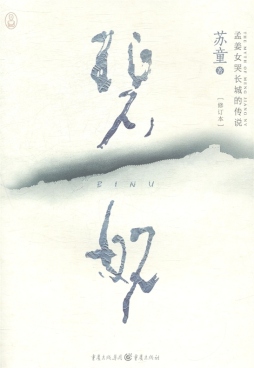 孟姜女哭长城的传说
苏童 著
[修订本]
碧奴
BINU
重庆出版集团 重庆出版社